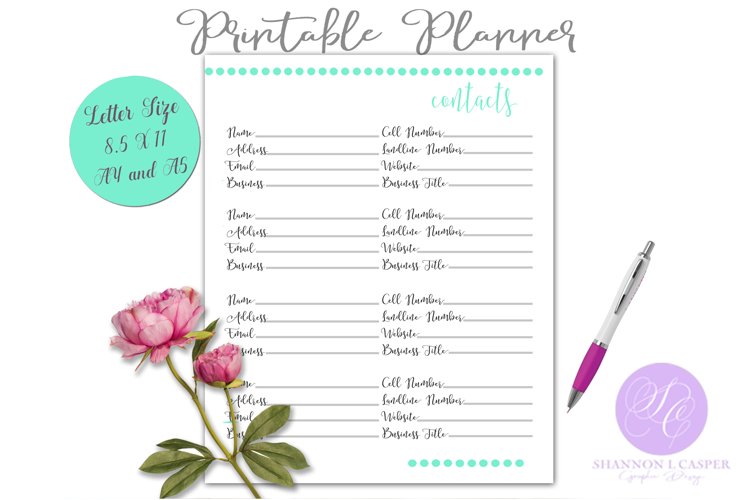 Printable Planner
Letter Size
8.5 X 11
A4 and A5
contacts
Name Cell Number
Address Landline Number
Email Website
Business Business Title
Name Cell Number
Address Landline Number
Email Website
Business Business Title
Name Cell Number
Address Landline Number
Email Website
Business Business Title
Name Cell Number
Address Landline Number
Email Website
Business Title
SC
SHANNON L CASPER
Graphic Design